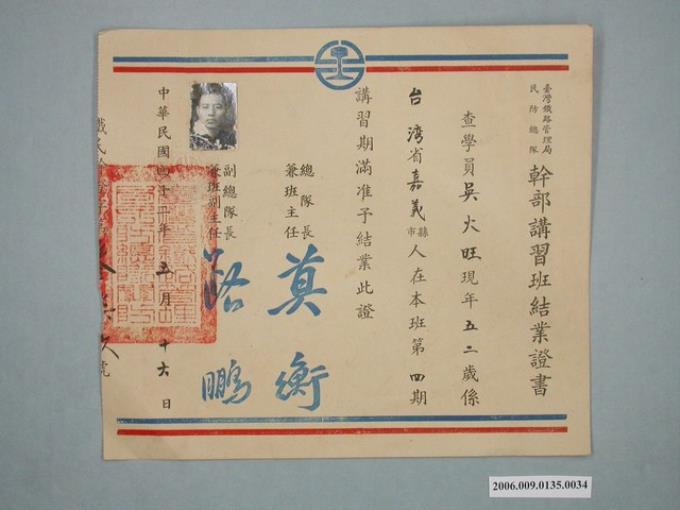 臺灣鐵路管理局
民防總隊
幹部講習班結業證書
查學員吳火旺現年五二歲係
台灣省嘉義縣市人在本班第四期
講習期滿准予結業此證
總隊長
兼班主任
莫衡
副總隊長
兼班副主任
路鵬
中華民國四十年五月十六日
號
2006.009.0135.0034